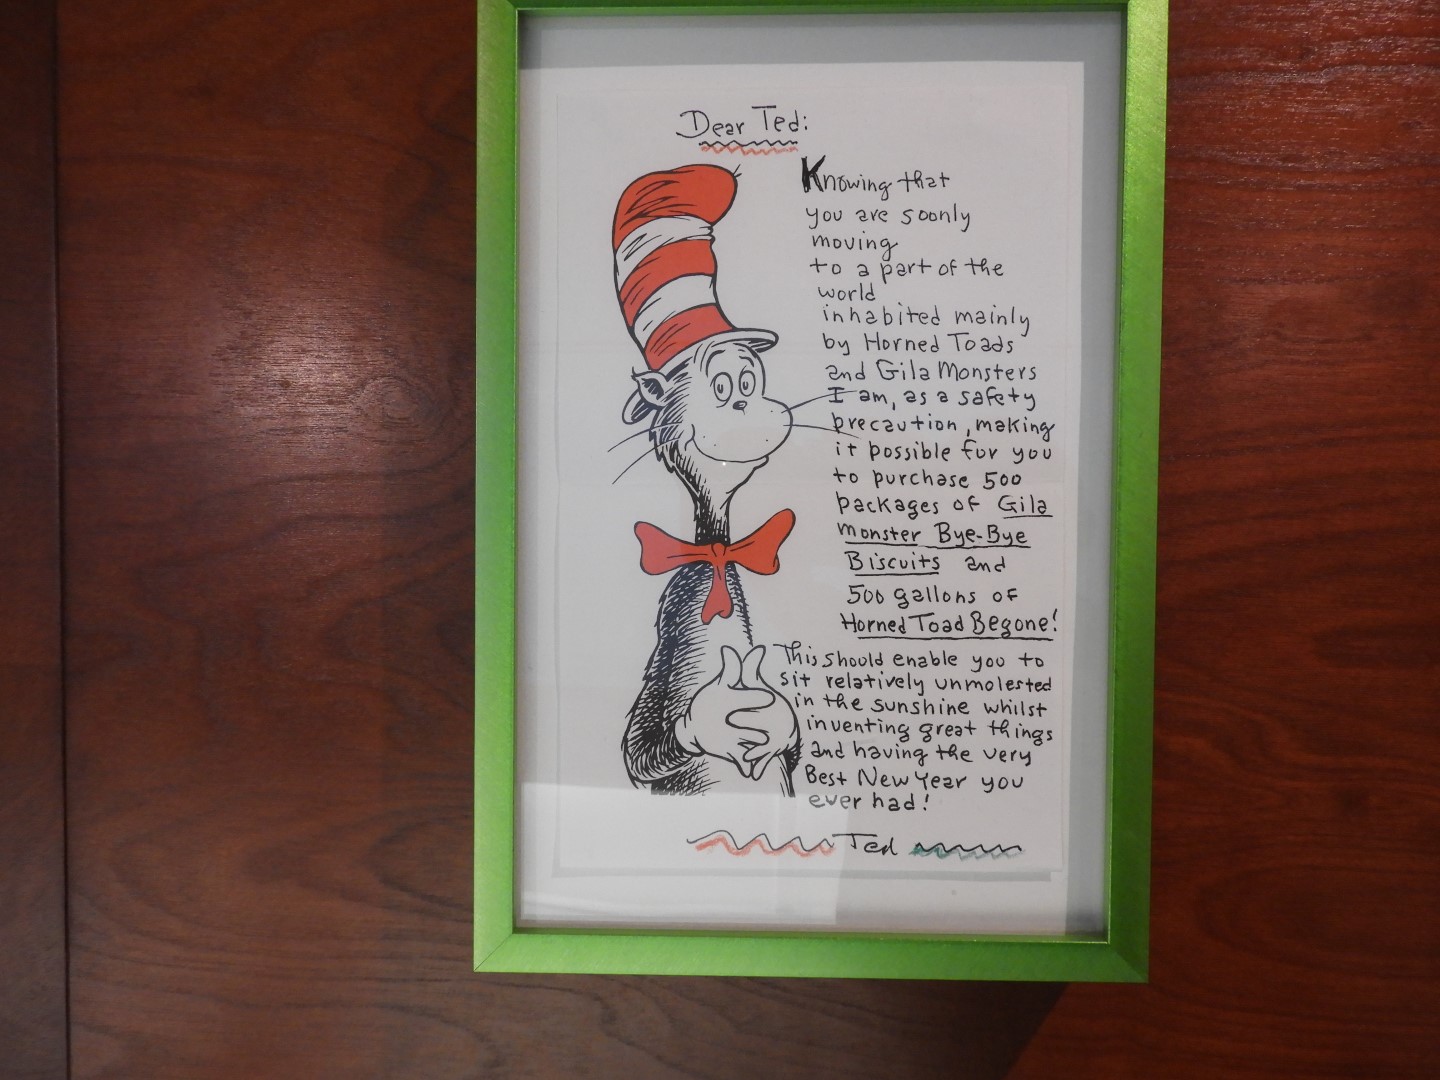 Dear Ted:
Knowing that
you are soonly
moving
to a part of the
world
inhabited mainly
by Horned Toads
and Gila Monsters
I am, as a safety
precaution, making
it possible for you
to purchase 500
packages of Gila
Monster Bye-Bye
Biscuits and
500 gallons of
Horned Toad Begone!
This should enable you to
sit relatively unmolested
in the sunshine whilst
inventing great things
and having the very
Best New Year you
ever had!
Ted